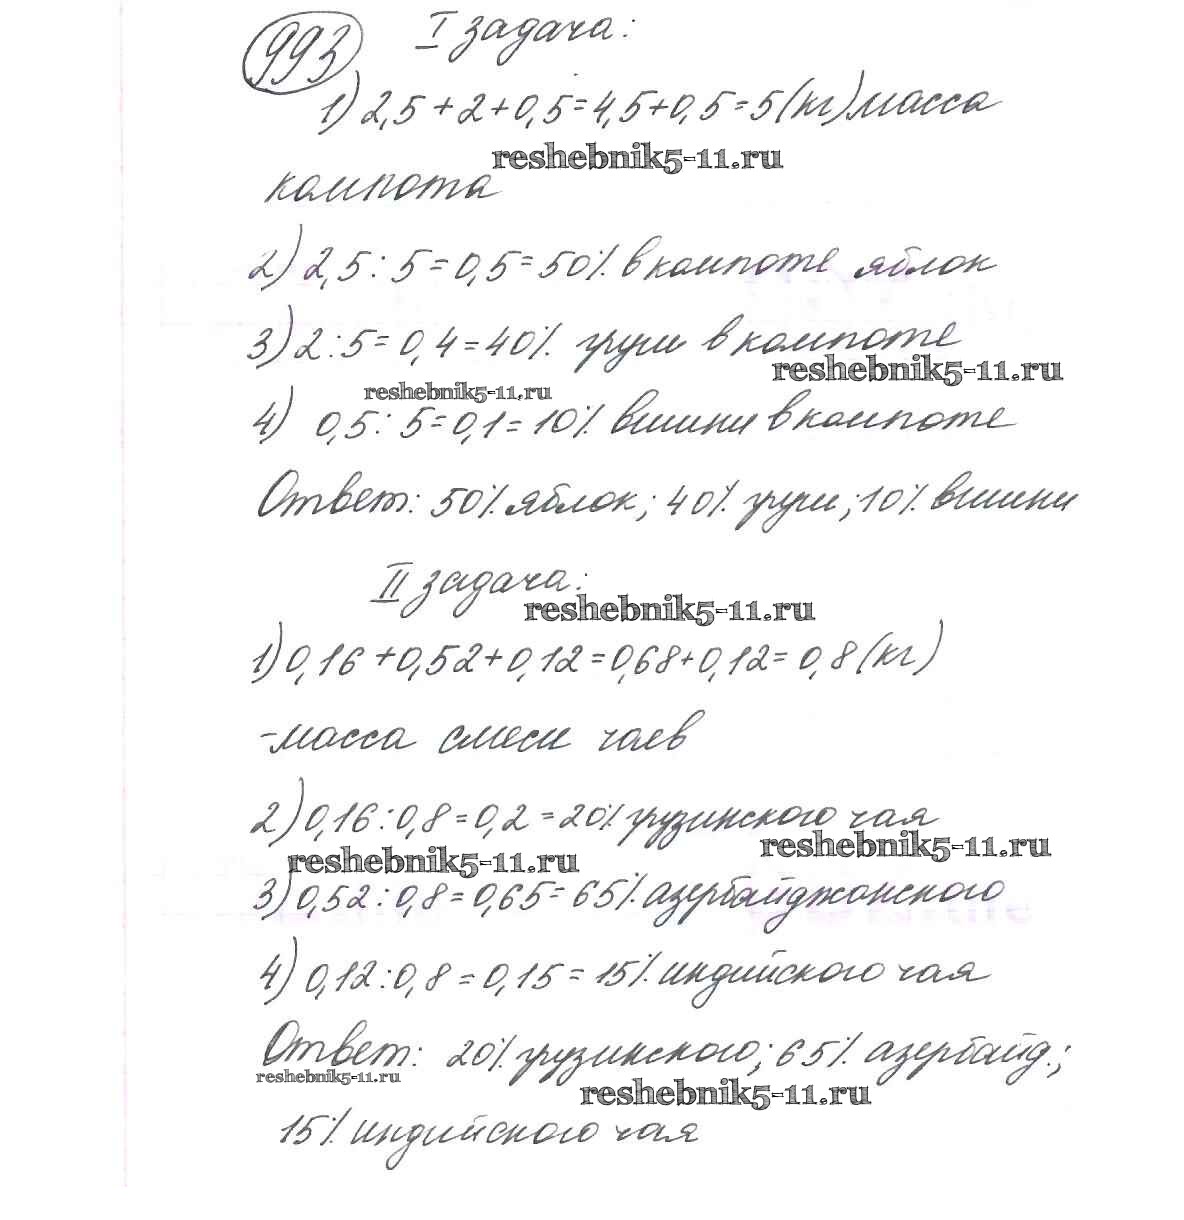 993 I задача:
1) 2,5 + 2 + 0,5 = 4,5 + 0,5 = 5 (кг) масса
reshebnik5-11.ru
компота
2) 2,5 : 5 = 0,5 = 50% в компоте яблок
3) 2 : 5 = 0,4 = 40% груш в компоте
reshebnik5-11.ru
reshebnik5-11.ru
4) 0,5 : 5 = 0,1 = 10% вишни в компоте
Ответ: 50% яблок; 40% груш; 10% вишни
II задача:
reshebnik5-11.ru
1) 0,16 + 0,52 + 0,12 = 0,68 + 0,12 = 0,8 (кг)
- масса смеси чаев
2) 0,16 : 0,8 = 0,2 = 20% грузинского чая
reshebnik5-11.ru
reshebnik5-11.ru
3) 0,52 : 0,8 = 0,65 = 65% азербайджанского
4) 0,12 : 0,8 = 0,15 = 15% индийского чая
Ответ: 20% грузинского; 65% азербайд.;
reshebnik5-11.ru
reshebnik5-11.ru
15% индийского чая